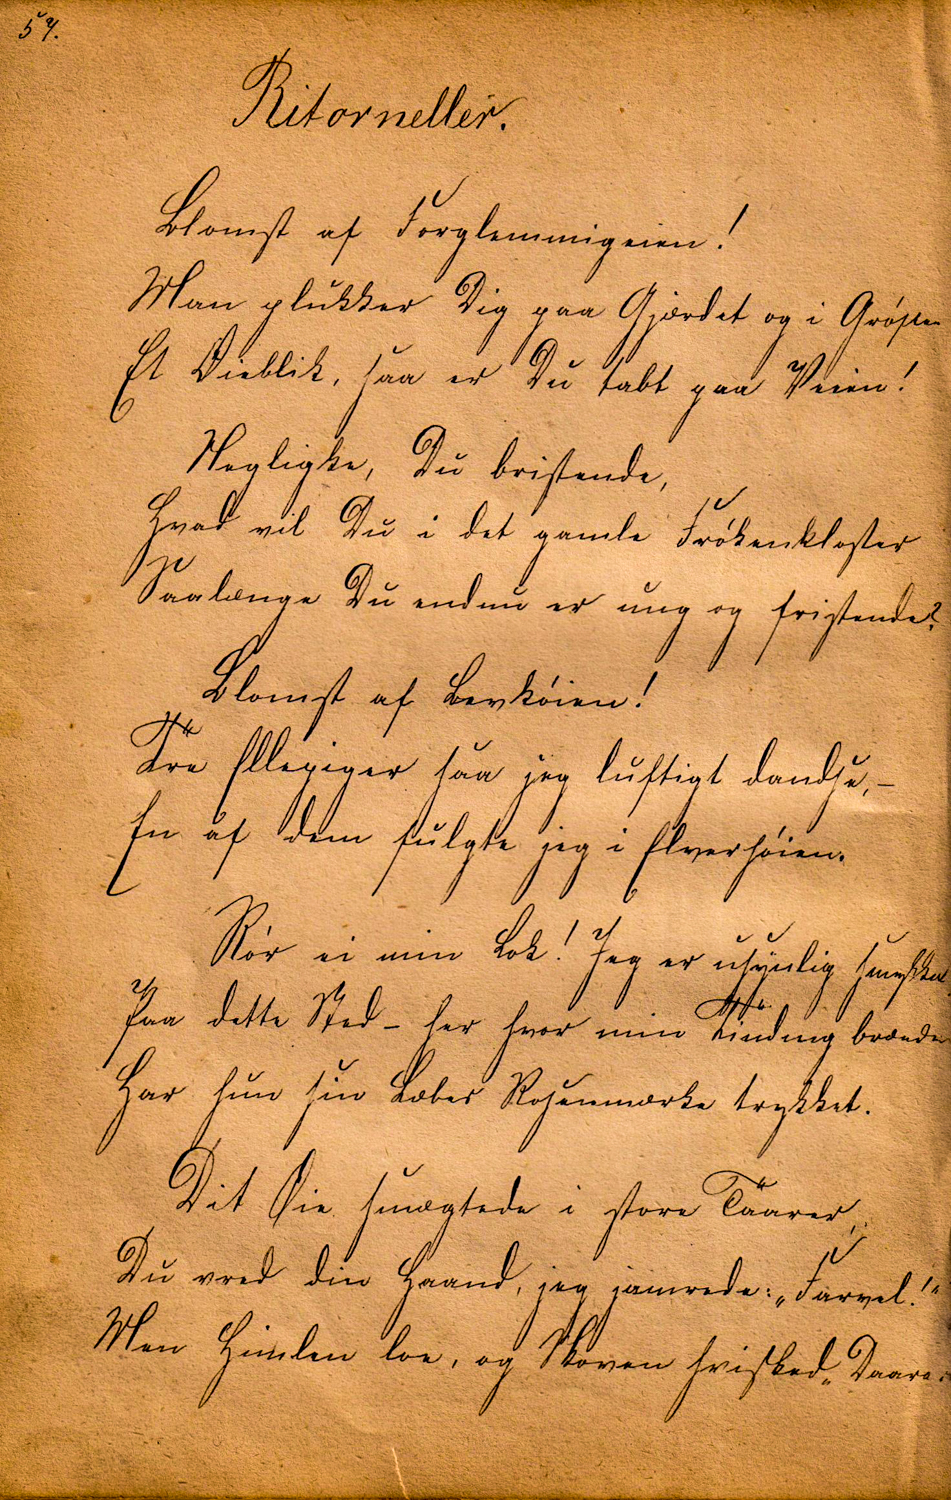 57.
Ritorneller.
Blomst af Forglemmigeien!
Man plukker Dig paa Gjærdet og i Grøften
Et Øieblik, saa er Du tabt paa Veien!
Negligke, Du bristende,
Hvad vil Du i det gamle Frøkenkloster
Saalænge Du endnu er ung og fristende?
Blomst af Levkøien!
Tre Ellepiger saa jeg luftigt dandse, –
En af dem fulgte jeg i Elverhøien.
Rør ei min Lok! Jeg er usynlig smykket
Paa dette Sted – her hvor min Tinding brænder
Har hun sin Læbes Rosenmærke trykket.
Dit Øie smægtede i store Taarer,
Du vred din Haand, jeg jamrede: „Farvel!"
Men Himlen loe, og Skoven hvisked „Daare